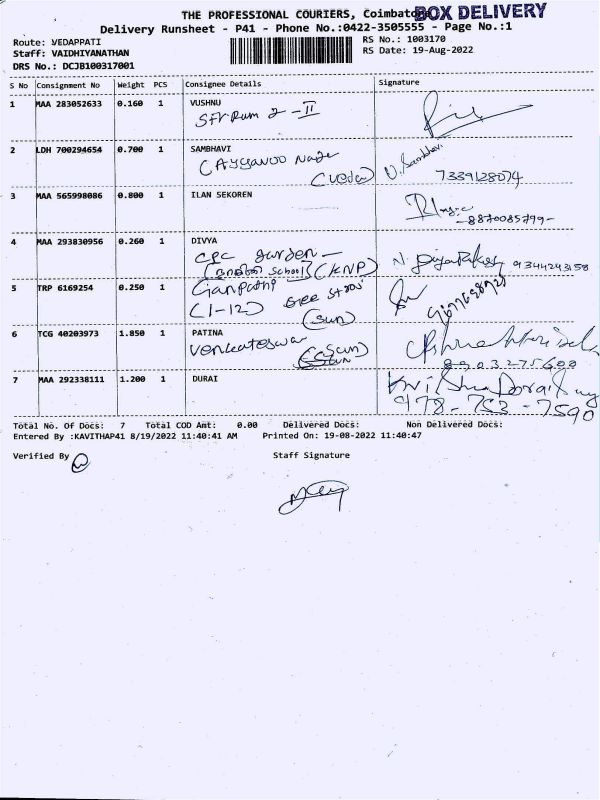 THE PROFESSIONAL COURIERS, Coimbatore
BOX DELIVERY
Delivery Runsheet - P41 - Phone No.:0422-3505555 - Page No.:1
Route: VEDAPPATI
RS No.: 1003170
Staff: VAIDHIYANATHAN
RS Date: 19-Aug-2022
DRS No.: DCJB100317001
S No Consignment No Weight PCS Consignee Details Signature
1 MAA 283052633 0.160 1 VUSHNU
2 - II
2 LDH 700294654 0.700 1 SAMBHAVI
7339128074
3 MAA 565998086 0.800 1 ILAN SEKOREN
-8870085799-
4 MAA 293830956 0.260 1 DIVYA
CPC Garden -
School) (KNP)
9344243158
5 TRP 6169254 0.250 1 Ganpathi
(1-12)
(Sun)
6 TCG 40203973 1.850 1 PATINA
Venkateswa
(Sun)
8903275600
7 MAA 292338111 1.200 1 DURAI
978-753-7590
Total No. Of Docs: 7 Total COD Amt: 0.00 Delivered Docs: Non Delivered Docs:
Entered By :KAVITHAP41 8/19/2022 11:40:41 AM Printed On: 19-08-2022 11:40:47
Verified By Staff Signature